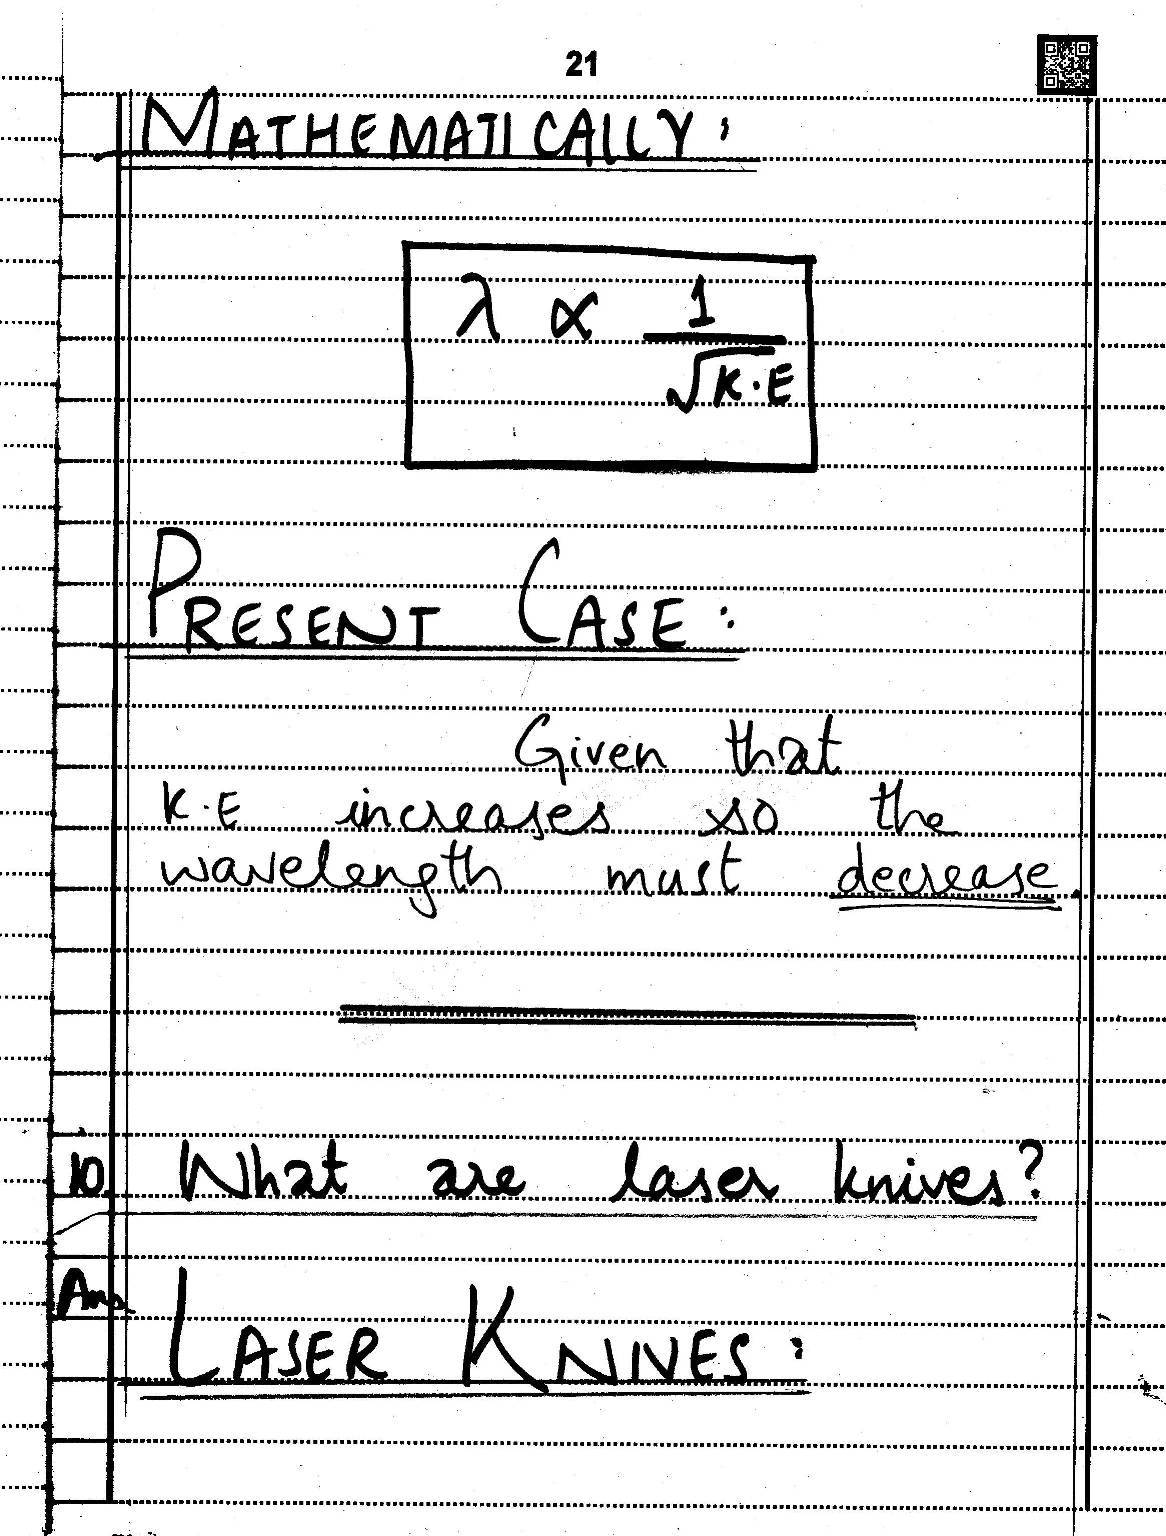 21
MATHEMATICALLY:
λ ∝ 1/√K.E
PRESENT CASE:
Given that
K.E increases so the
wavelength must decrease.
10. What are laser knives?
Ans. LASER KNIVES: